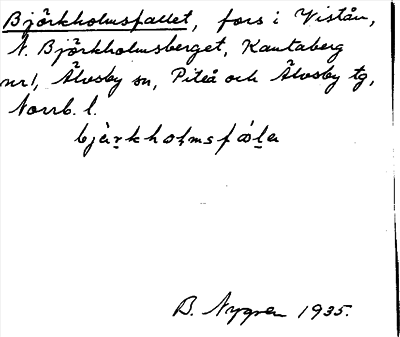 Björkholmsfallet, fors i Vistån,
N. Björkholmsberget, Kantaberg
nr 1, Älvsby sn, Piteå och Älvsby tg,
Norrb. l.
B. Nygren 1935.